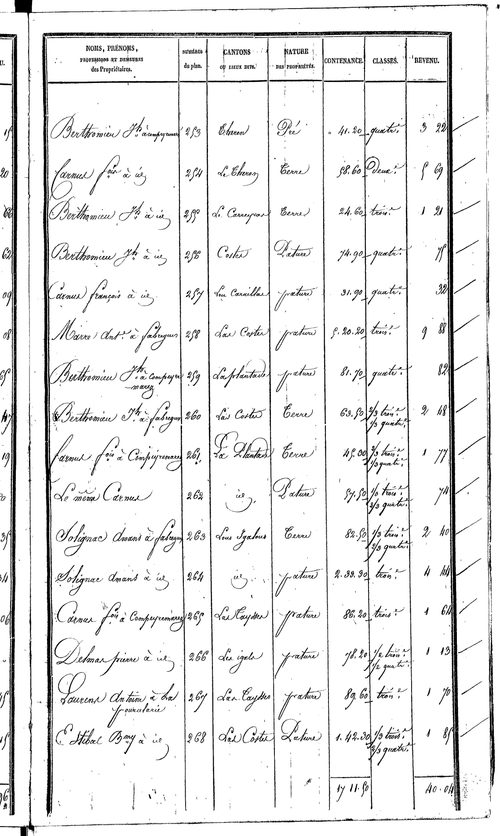 NOMS, PRÉNOMS, PROFESSIONS ET DEMEURES des Propriétaires. NUMÉROS du plan. CANTONS OU LIEUX DITS. NATURE DES PROPRIÉTÉS. CONTENANCE. CLASSES. REVENU.
Berthomieu Jh à compeyremarez 253 Theron Pré 41.20 quatre 3 22
Carnus fois à id 254 Le Theron Terre 58.60 Deux 5 69
Berthomieu Jh à id 255 Terre 24.60 trois 1 21
Berthomieu Jh à id 256 Costes Pature 74.90 quatre 75
Carnus françois à id 257 pature 31.90 quatre 32
Marre Ant. à fabregues 258 Las Costes pature 5.20.20 trois 9 88
Berthomieu Jh à compeyremarez 259 La plantade pature 81.70 quatre 82
Berthomieu Jh à fabregues 260 Las Costes Terre 63.50 2/3 quatre 2 48
Carnus fois à Compeyremarez 261 La Plantade Terre 45.00 1 77
Le même Carnus 262 id Pature 57.50 2/3 quatre 74
Solignac amans à fabregues 263 Terre 82.50 1/3 trois 2/3 quatre 2 40
Solignac amans à id 264 id pature 2.33.30 trois 4 44
Carnus fois à Compeyremarez 265 Las Faysses pature 86.20 trois 1 64
Delmas pierre à id 266 Les igals pature 78.20 1/2 trois 1/2 quatre 1 13
Laurens antoine à la 267 Las Faysses pature 89.60 trois 1 70
Estibal Bmy à id 268 Las Costes Pature 1.42.30 1/3 trois 2/3 quatre 1 85
17 11.50 40.04